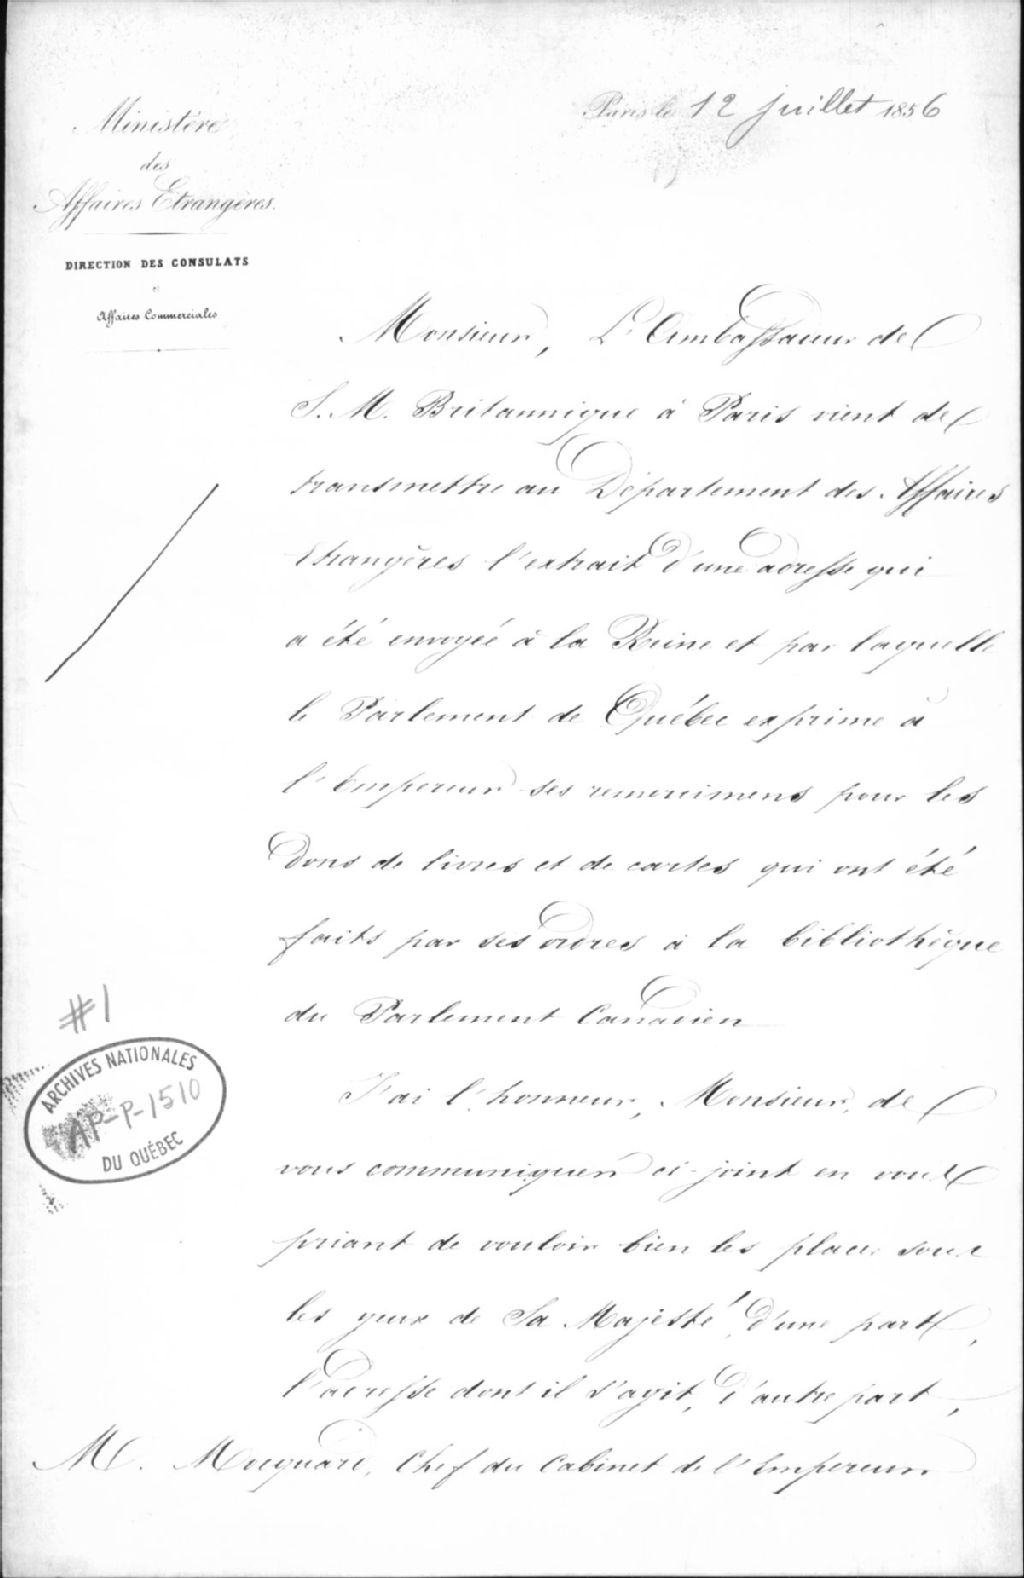 Ministère
des
Affaires Etrangères.
DIRECTION DES CONSULATS
et
Affaires Commerciales
Paris le 12 juillet 1856
Monsieur, L'Ambassadeur de
S. M. Britannique à Paris vient de
transmettre au Département des Affaires
Etrangères l'extrait d'une adresse qui
a été envoyée à la Reine et par laquelle
le Parlement de Québec exprime à
l'Empereur ses remercimens pour les
dons de livres et de cartes qui ont été
faits par ses ordres à la bibliothèque
du Parlement Canadien
J'ai l'honneur, Monsieur, de
vous communiquer ci-joint en vous
priant de vouloir bien les placer sous
les yeux de Sa Majesté, d'une part,
l'adresse dont il s'agit, d'autre part,
M. Mocquard, Chef du Cabinet de l'Empereur
#1
ARCHIVES NATIONALES
AP-P-1510
DU QUÉBEC